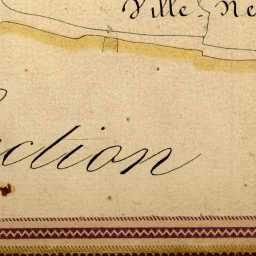 Ville-Ne
ction